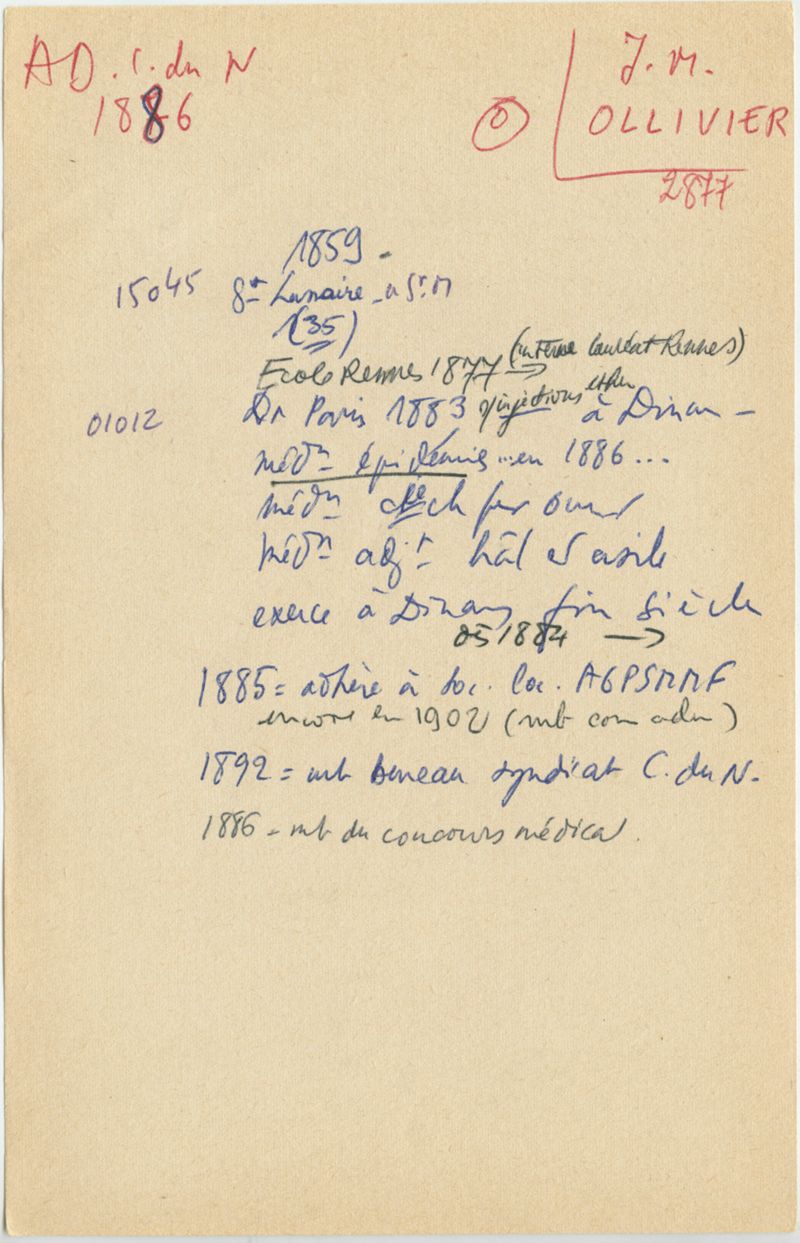 AD. C. du N
1886
J. M.
OLLIVIER
2877
1859.
15045 St Lunaire - a St. M
(35)
Ecole Rennes 1877 → (interne lauréat Rennes)
01012 Dr Paris 1883 injections ether à Dinan -
médn épidémies ... en 1886...
médn
médn adjt hôl et asile
exerce à Dinan fin siècle
ds 1884 →
1885 = adhère à Soc. loc. AGPSMMF
encore en 1902 (mb com adm)
1892 = mb bureau syndicat C. du N.
1886 - mb du concours médical.